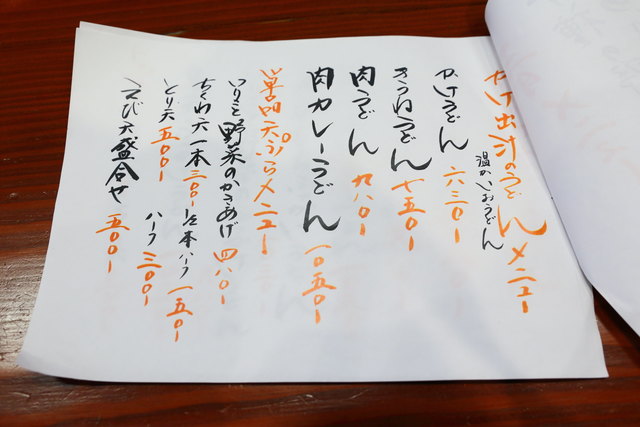 かけ出汁のうどんメニュー
温かいおうどん
かけうどん 六三〇ー
きつねうどん 七五〇ー
肉うどん 九八〇ー
肉カレーうどん 一〇五〇ー
単品天ぷらメニュー
いりこと野菜のかきあげ 四八〇ー
ちくわ天一本 三〇〇ー 1/2本ハーフ 一五〇ー
とり天 五〇〇ー ハーフ 三〇〇ー
えび天盛合せ 五〇〇ー